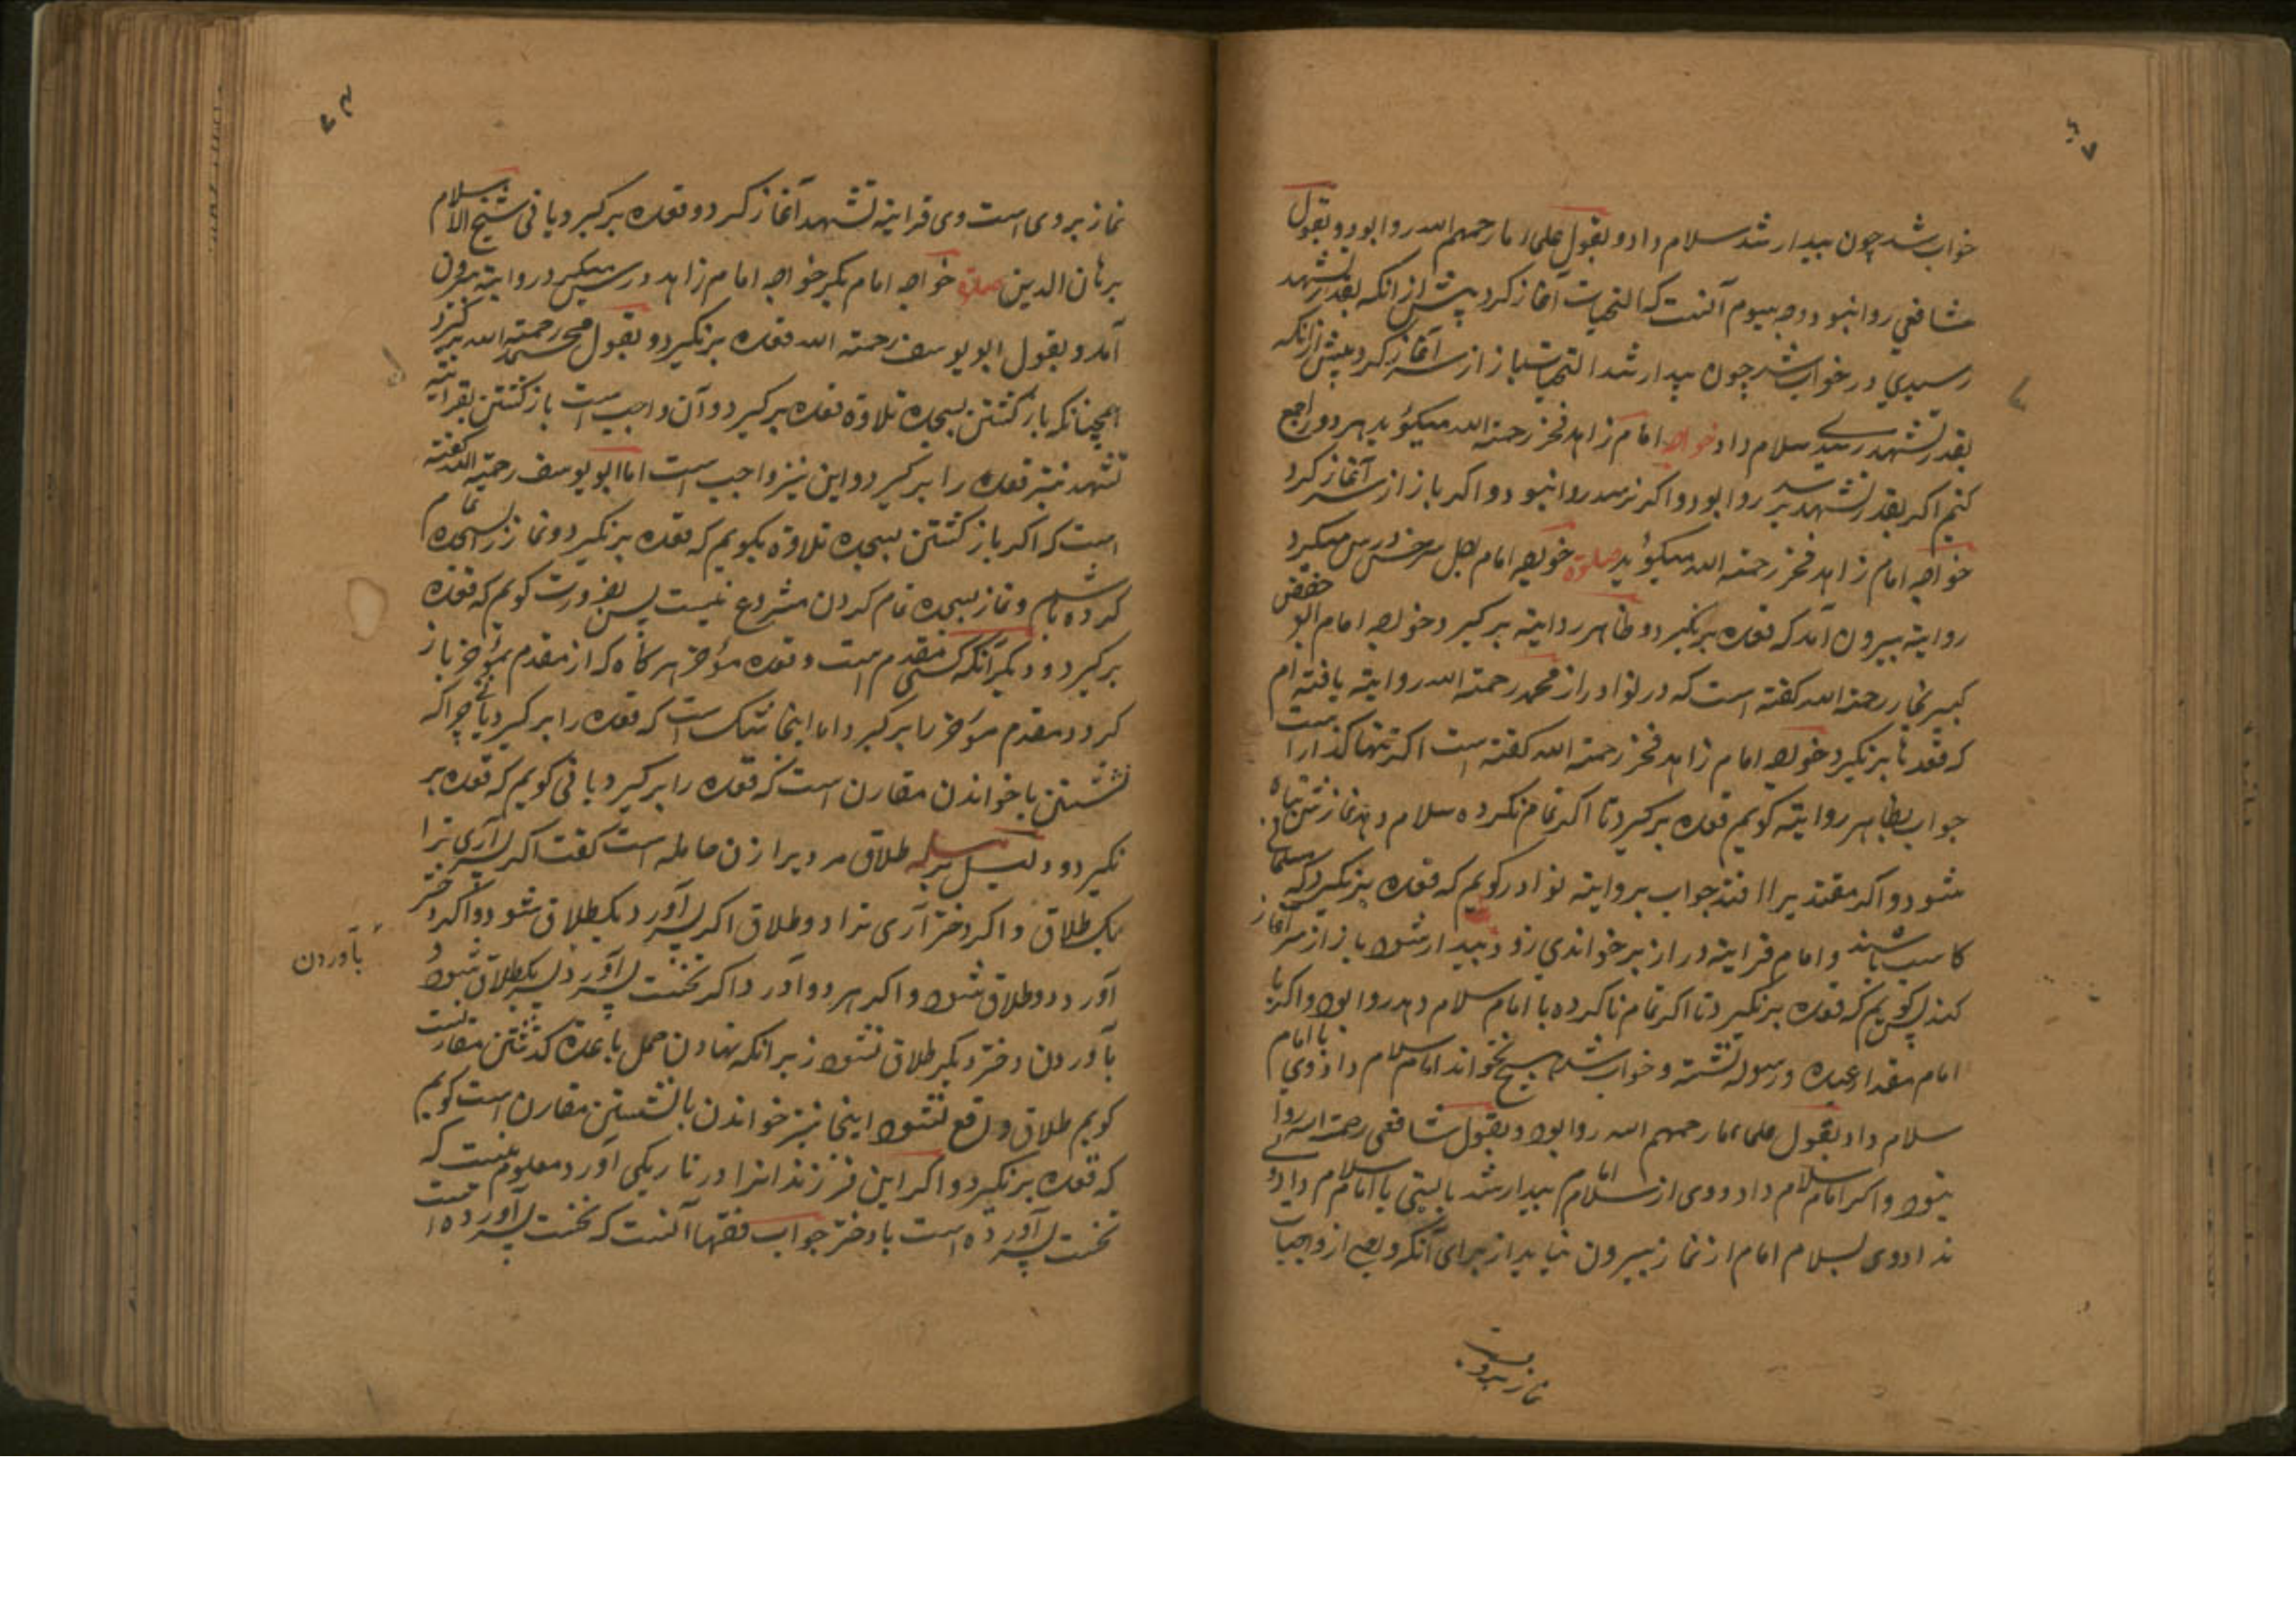 خواب شد چون بیدار شد سلام داد و بقول علماء ما رحمهم الله روا بود و بقول
شافعی روا نبود و وجه سیوم آنست که التحیات آغاز کرد پیش از انکه بقدر تشهد
رسیدی در خواب شد چون بیدار شد التحیات باز از سر آغاز کرد و پیش از انکه
بقدر تشهد رسیدی سلام داد خواجه امام زاهد فخر رحمة الله میکوید هر دو راجع
کنیم اکر بقدر تشهد رسید روا بود و اکر نرسد روا نبود و اکر باز از سر آغاز کرد
خواجه امام زاهد فخر رحمة الله میکوید صلوة خواجه امام اجل سرخسی درس میکرد
روایة بیرون آمد که قعده برنکیرد و ظاهر روایة برکیرد و خواجه امام ابو حفص
کبیر بخار رحمة الله کفته است که در نوادر از محمد رحمة الله روایة یافته ام
که قعده برنکیرد خواجه امام زاهد فخر رحمة الله کفته است اکر تنها کذار است
جواب بظاهر روایة کویم قعده برکیرد تا اکر تمام نکرده سلام دهد نمازش تباه
شود و اکر مقتدیرا افتد جواب بروایة نوادر کویم که قعده برنکیرد که
کاسب باشند و امام قرایة دراز بر خواندی زود بیدار شود باز از سر آغاز
کند پس کویم که قعده برنکیرد تا اکر تمام ناکرده با امام سلام دهد روا بود و اکر با
امام مقدار عبده و رسوله نشسته و خواب شد هیچ نخواند امام سلام داد وی با امام
سلام داد بقول علماء ما رحمهم الله روا بود و بقول شافعی رحمة الله روا
نبود و اکر امام سلام داد و وی از سلام امام بیدار شد بایستی با امام سلام دادی و
نداد وی بسلام امام از نماز بیرون نیاید از برای آنکه وی از واجبات
نماز بروی است
نماز بروی است وی قرایة تشهد آغاز کرد و قعده برکیرد یا نی شیخ الاسلام
برهان الدین صلوة خواجه امام بکر خواجه امام زاهد درس میکرد روایة بیرون
آمد و بقول ابو یوسف رحمة الله قعده برنکیرد و بقول محمد رحمة الله برکیرد
همچنانکه باز کشتن بسجده تلاوة قعده برکیرد و آن واجب است باز کشتن بقرایة
تشهد نیز قعده را برکیرد و این نیز واجب است اما ابو یوسف رحمة الله کفته
است که اکر باز کشتن بسجده تلاوة بکویم که قعده برنکیرد و نماز را بسجده تمام
کرده باشیم و نماز بسجده تمام کردن مشروع نیست پس بضرورت کویم که قعده
برکیرد و دیکر آنکه مقدم است و قعده مؤخر هرکاه که از مقدم بمؤخر باز
کردد مقدم مؤخر را برکیرد اما اینجا شک است که قعده را برکیرد یا نی چرا که
نشستن با خواندن مقارن است که قعده را برکیرد یا نی کویم که قعده بر
نکیرد و دلیل بر مسئله طلاق مردیرا زن حامله است کفت اکر پسر آری ترا
یک طلاق و اکر دختر آری ترا دو طلاق اکر پسر آورد یک طلاق شود و اکر دختر
آورد دو طلاق شود و اکر هر دو آورد و اکر نخست پسر آورد پس یک طلاق شود و
بآوردن دختر دیکر طلاق نشود زیرانکه نهادن حمل با عده کذشتن مقارنست
کویم طلاق واقع نشود اینجا نیز خواندن با نشستن مقارن است کویم
که قعده برنکیرد و اکر این فرزندانرا در تاریکی آورد معلوم نیست که
نخست پسر آورده است یا دختر جواب فقها آنست که نخست پسر آورده است
بآوردن